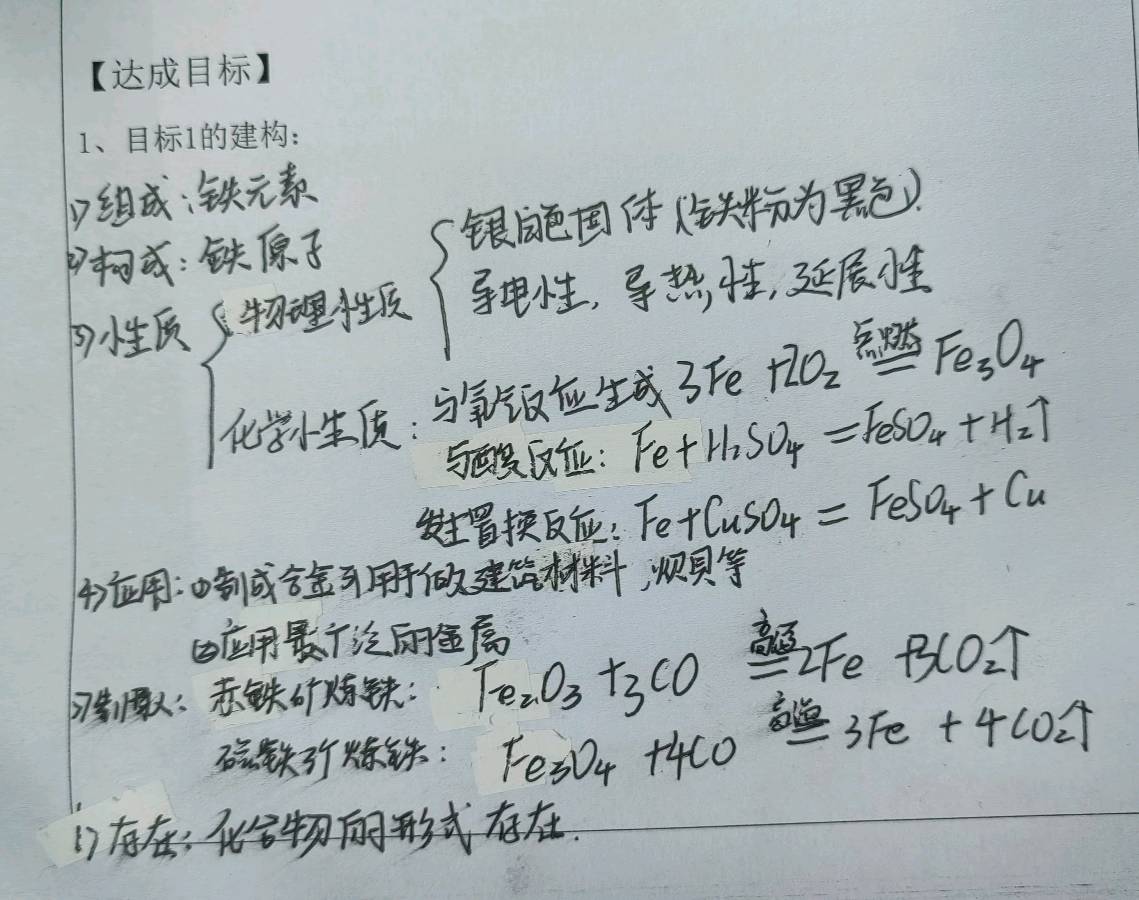 【达成目标】
1、目标1的建构：
1)组成：铁元素
2)构成：铁原子
3)性质
物理性质
银白色固体(铁粉为黑色).
导电性，导热性，延展性
化学性质：与氧气反应生成 3Fe+2O₂ 点燃= Fe₃O₄
与酸反应：Fe+H₂SO₄=FeSO₄+H₂↑
发生置换反应：Fe+CuSO₄=FeSO₄+Cu
4)应用：①制成合金可用于做建筑材料，炊具等
②应用最广泛的金属
5)制取：赤铁矿炼铁：Fe₂O₃+3CO 高温= 2Fe+3CO₂↑
磁铁矿炼铁：Fe₃O₄+4CO 高温= 3Fe+4CO₂↑
存在：化合物的形式存在.